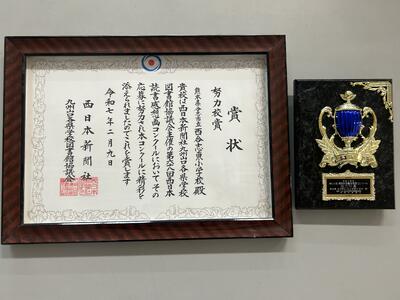 賞状
努力校賞
熊本県合志市立西合志東小学校殿
貴校は西日本新聞社九州山口各県学校
図書館協議会主催の第六十八回西日本
読書感想画コンクールにおいて その
応募に努力され本コンクールに精彩を
添えられましたのでこれを賞します
令和七年二月九日
西日本新聞社
九州山口各県学校図書館協議会